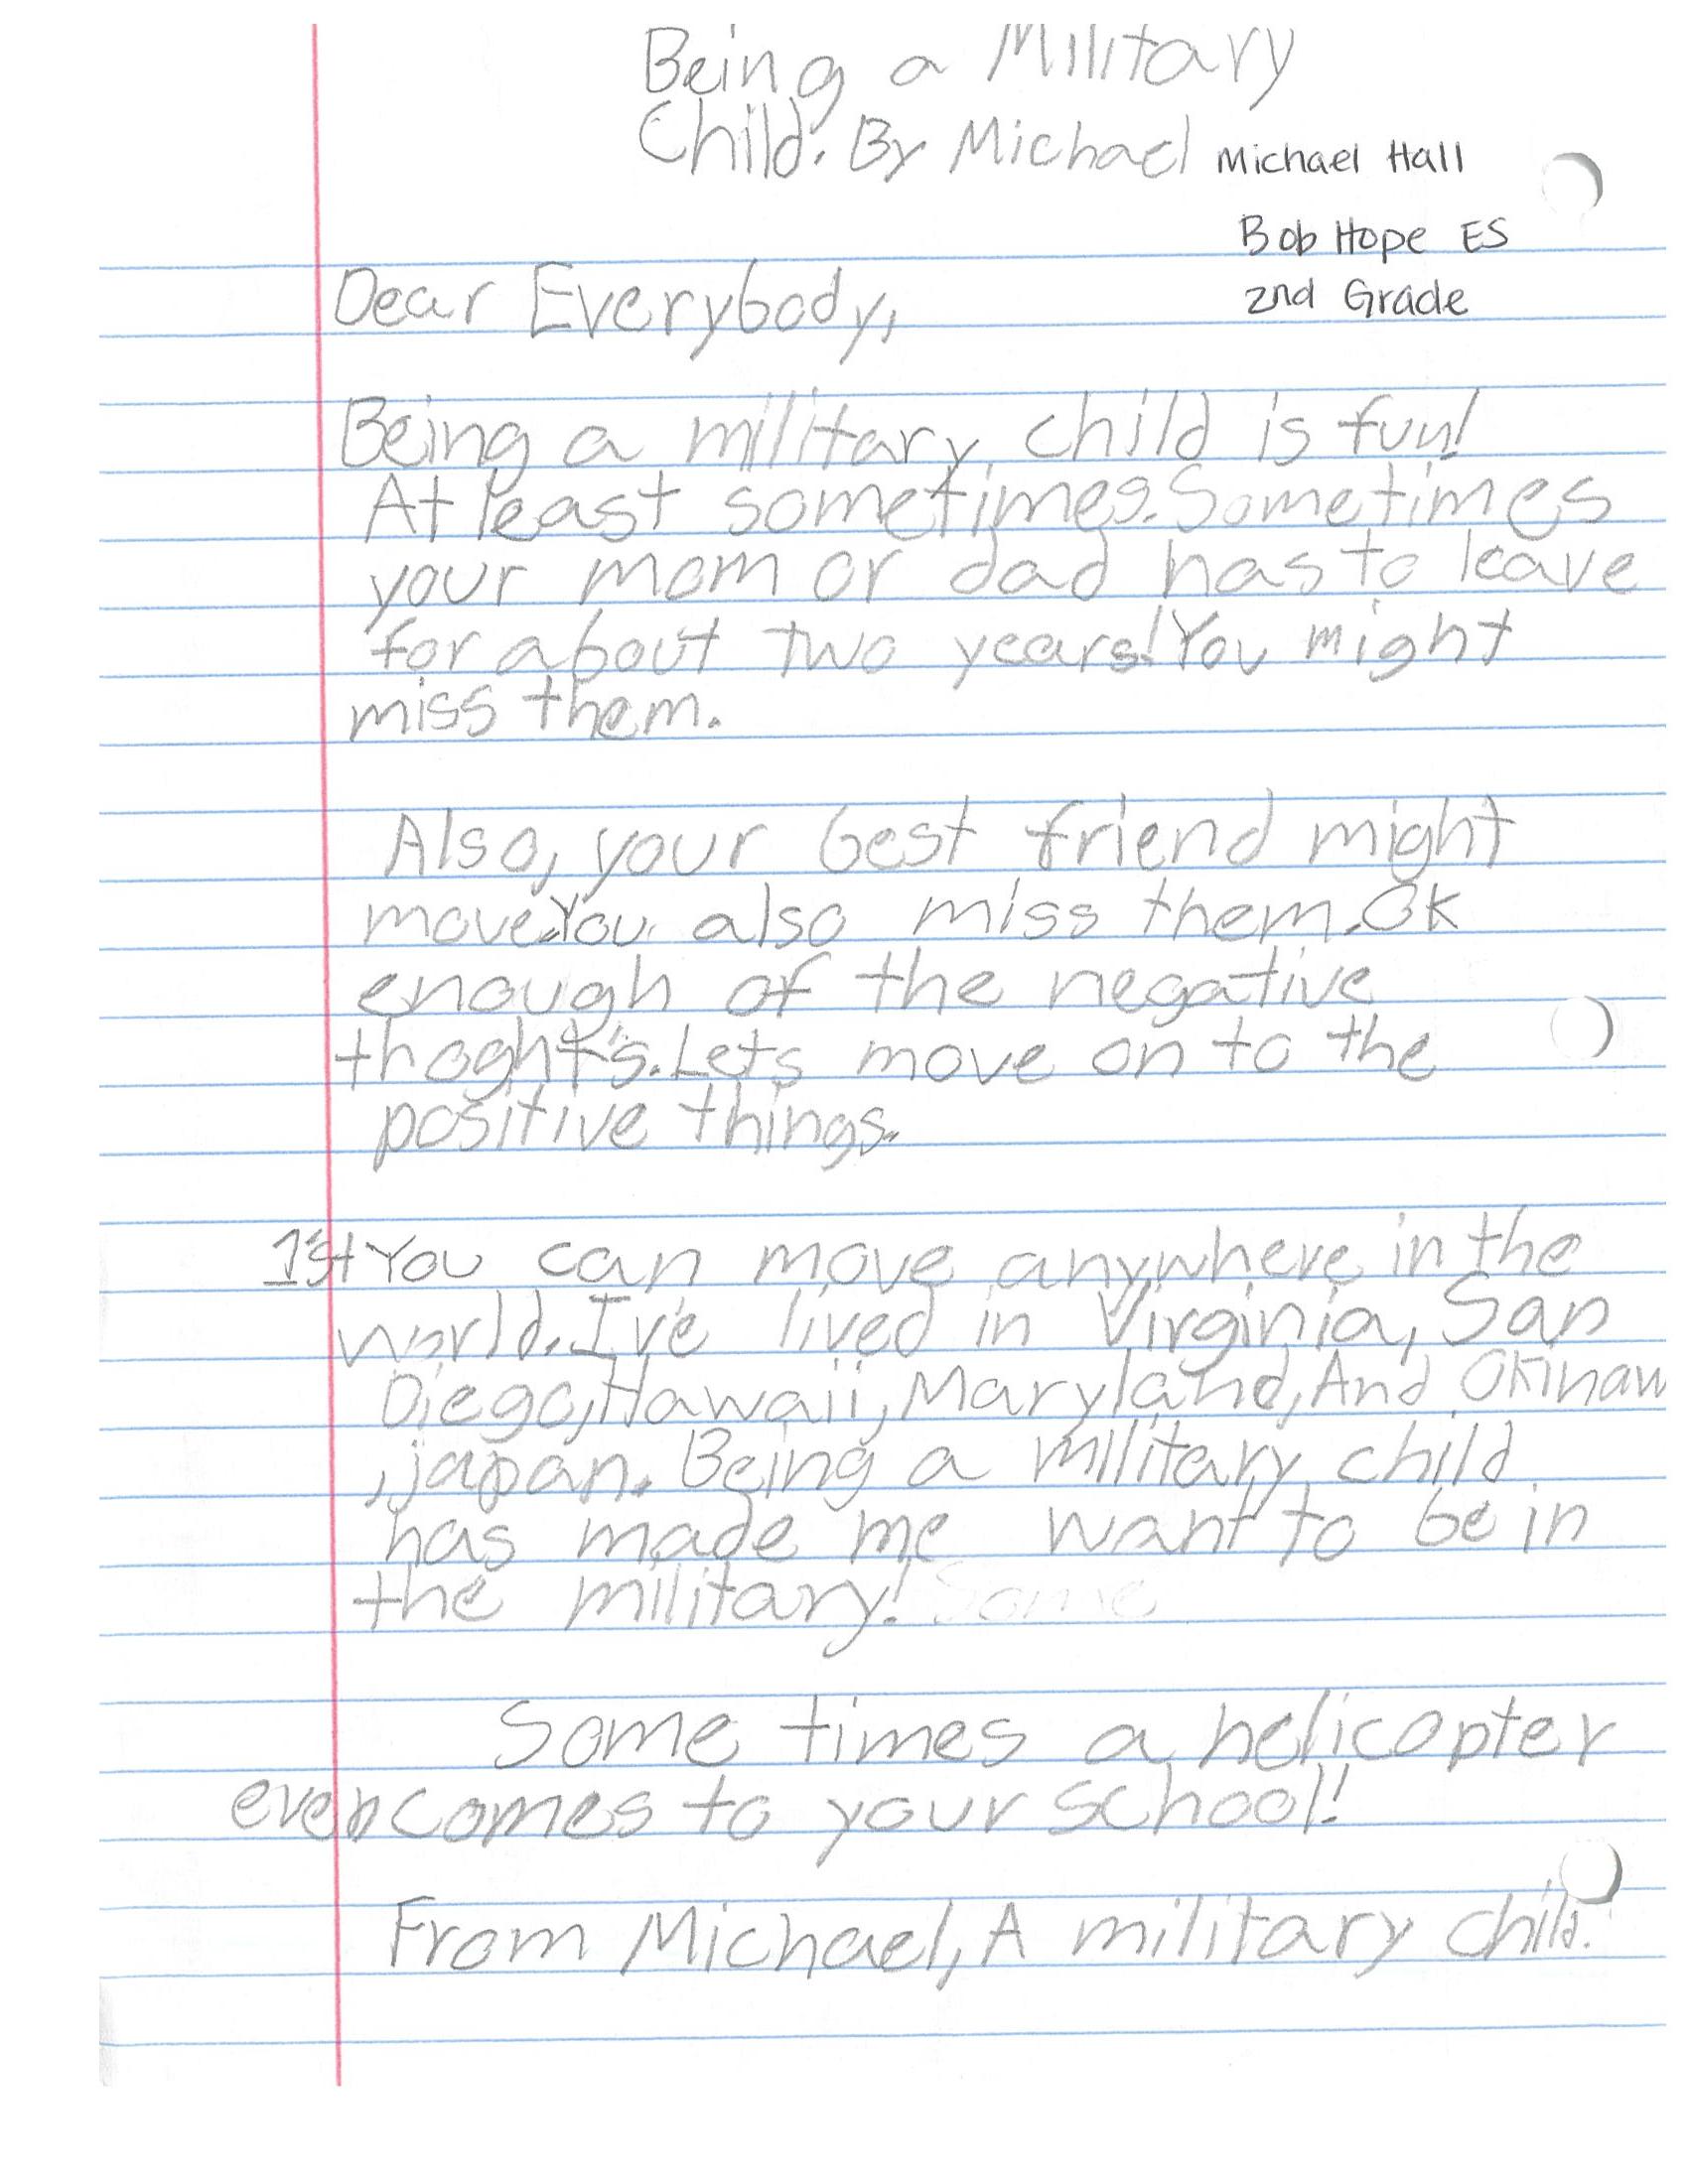 Being a Military
Child. By Michael Michael Hall
Bob Hope ES
2nd Grade
Dear Everybody,
Being a military child is fun!
At least sometimes. Sometimes
your mom or dad has to leave
for about two years! You might
miss them.
Also, your best friend might
move. You also miss them. Ok
enough of the negative
thoght's. Lets move on to the
positive things.
1st You can move anywhere in the
world. I've lived in Virginia, San
Diego, Hawaii, Maryland, And Okinaw
, japan. Being a military child
has made me want to be in
the military! Some
Some times a helicopter
even comes to your school!
From Michael, A military child.